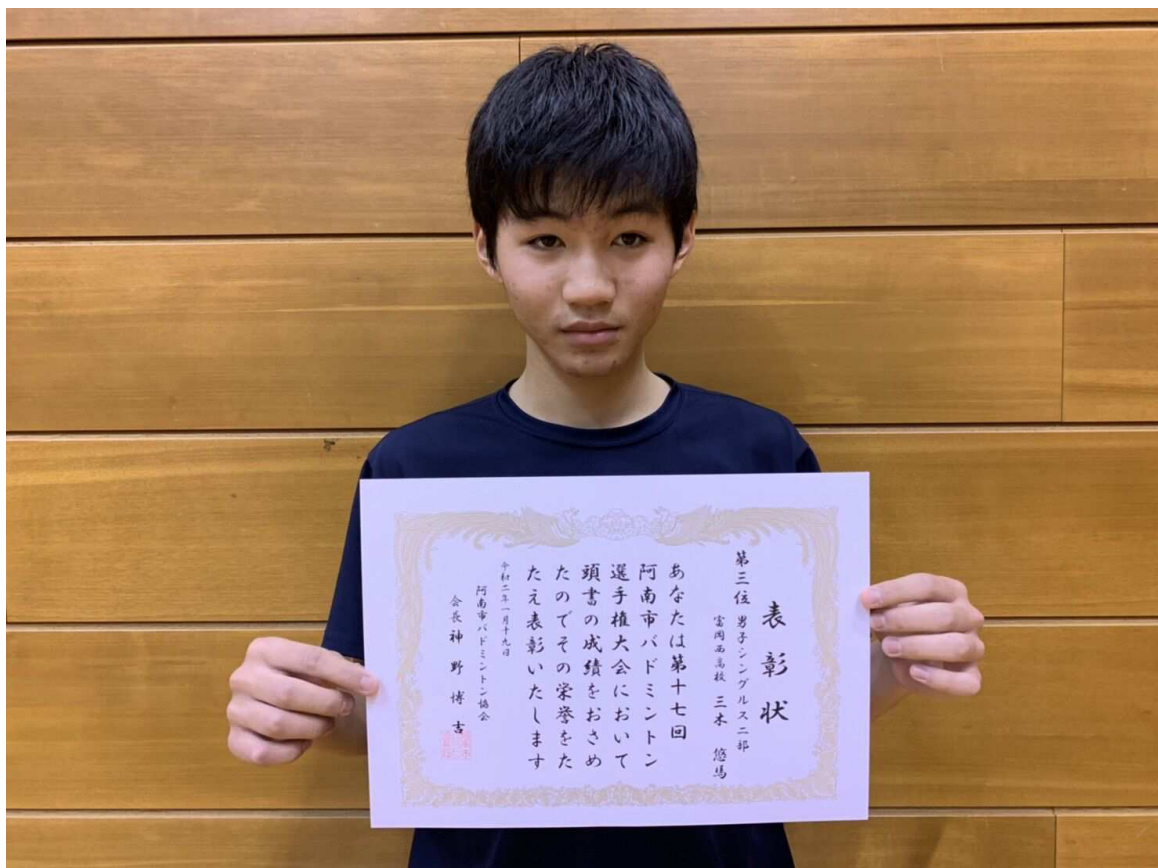 表彰状
第三位 男子シングルス二部
富岡西高校 三木 悠馬
あなたは第十七回
阿南市バドミントン
選手権大会において
頭書の成績をおさめ
たのでその栄誉をた
たえ表彰いたします
令和二年一月十九日
阿南市バドミントン協会
会長 神野博吉